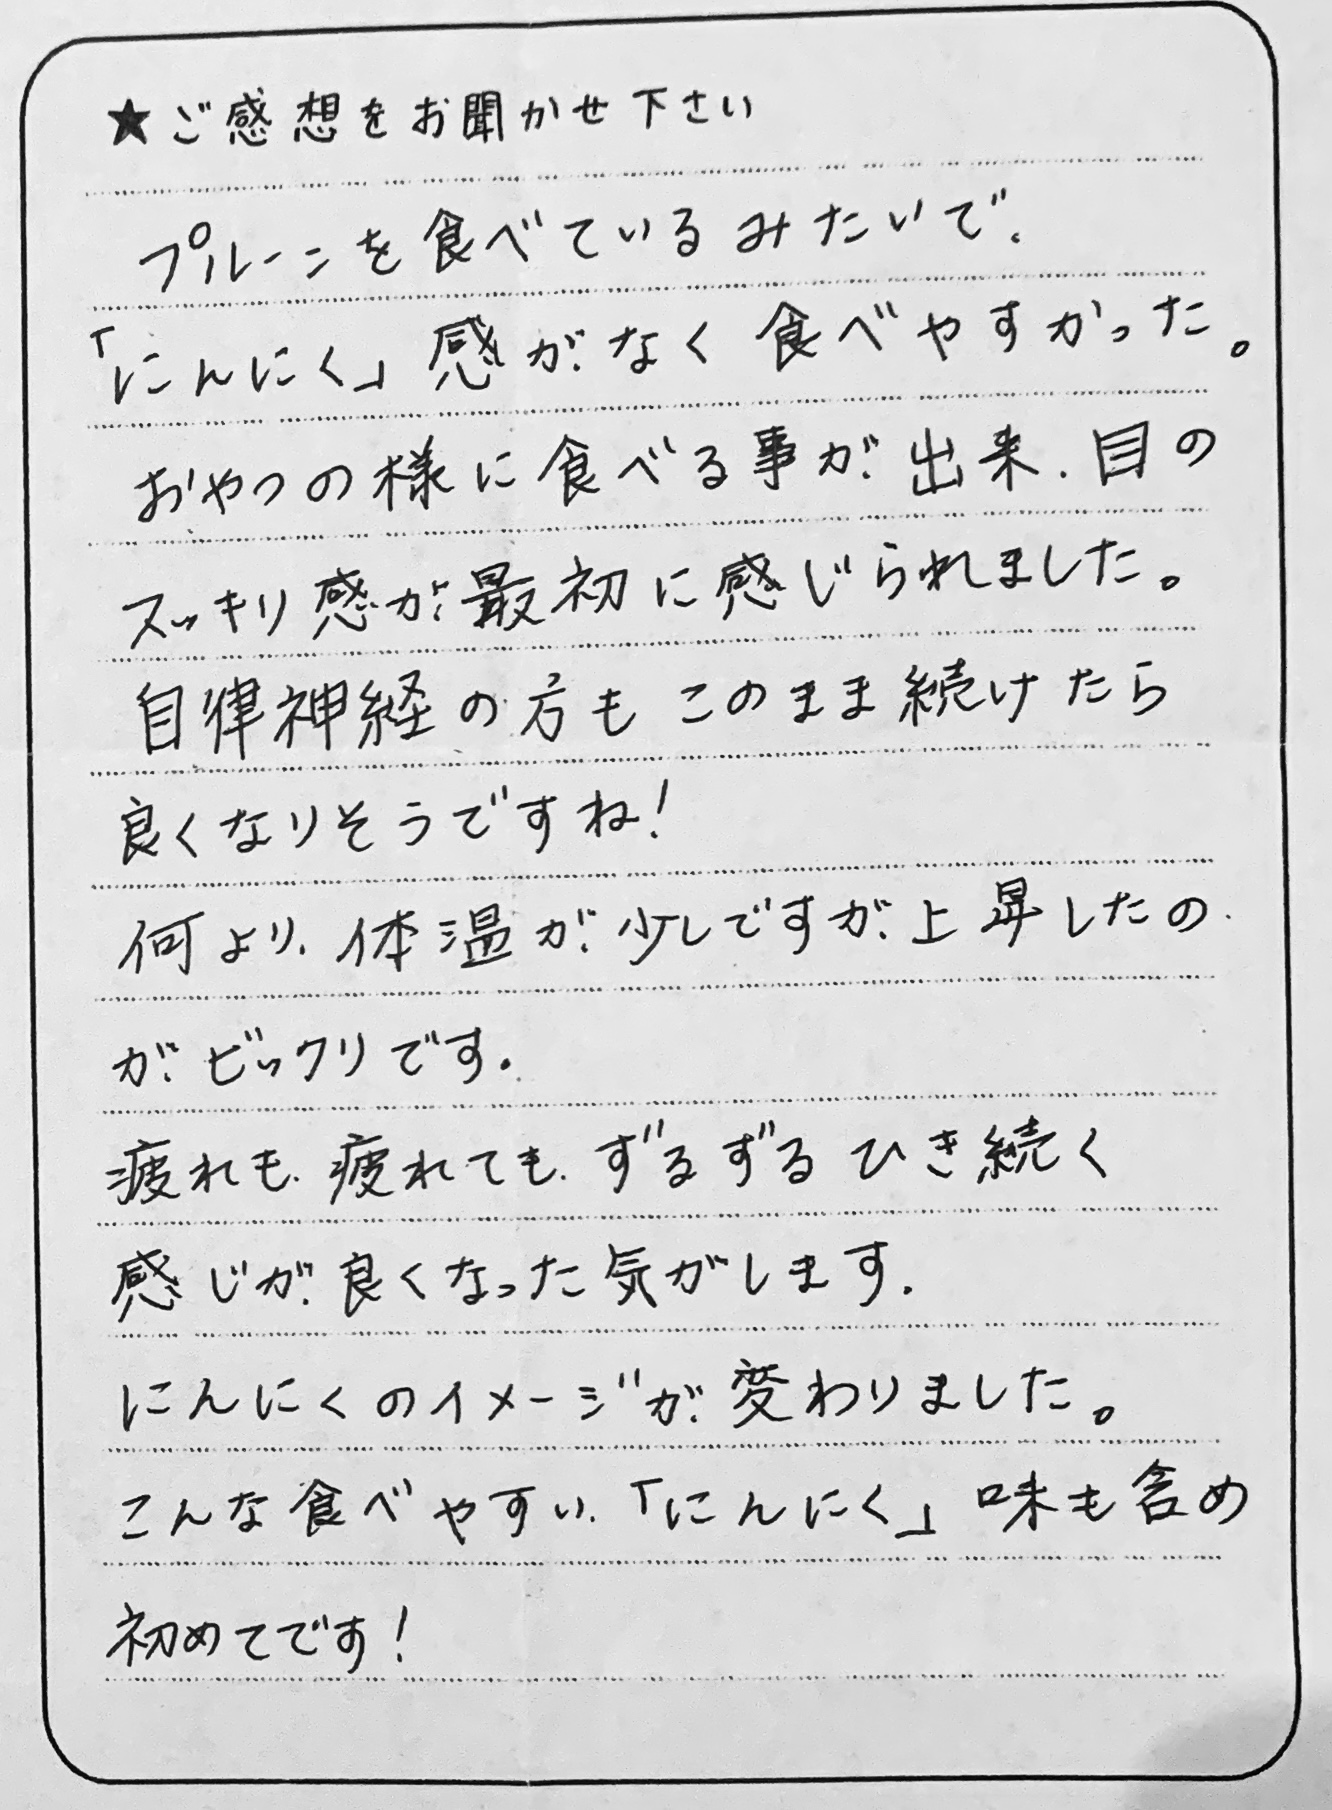 ★ご感想をお聞かせ下さい
プルーンを食べているみたいで、
「にんにく」感がなく食べやすかった。
おやつの様に食べる事が出来、目の
スッキリ感が最初に感じられました。
自律神経の方もこのまま続けたら
良くなりそうですね!
何より、体温が少しですが上昇したの
がビックリです。
疲れも、疲れても、ずるずるひき続く
感じが良くなった気がします。
にんにくのイメージが変わりました。
こんな食べやすい、「にんにく」味も含め
初めてです!